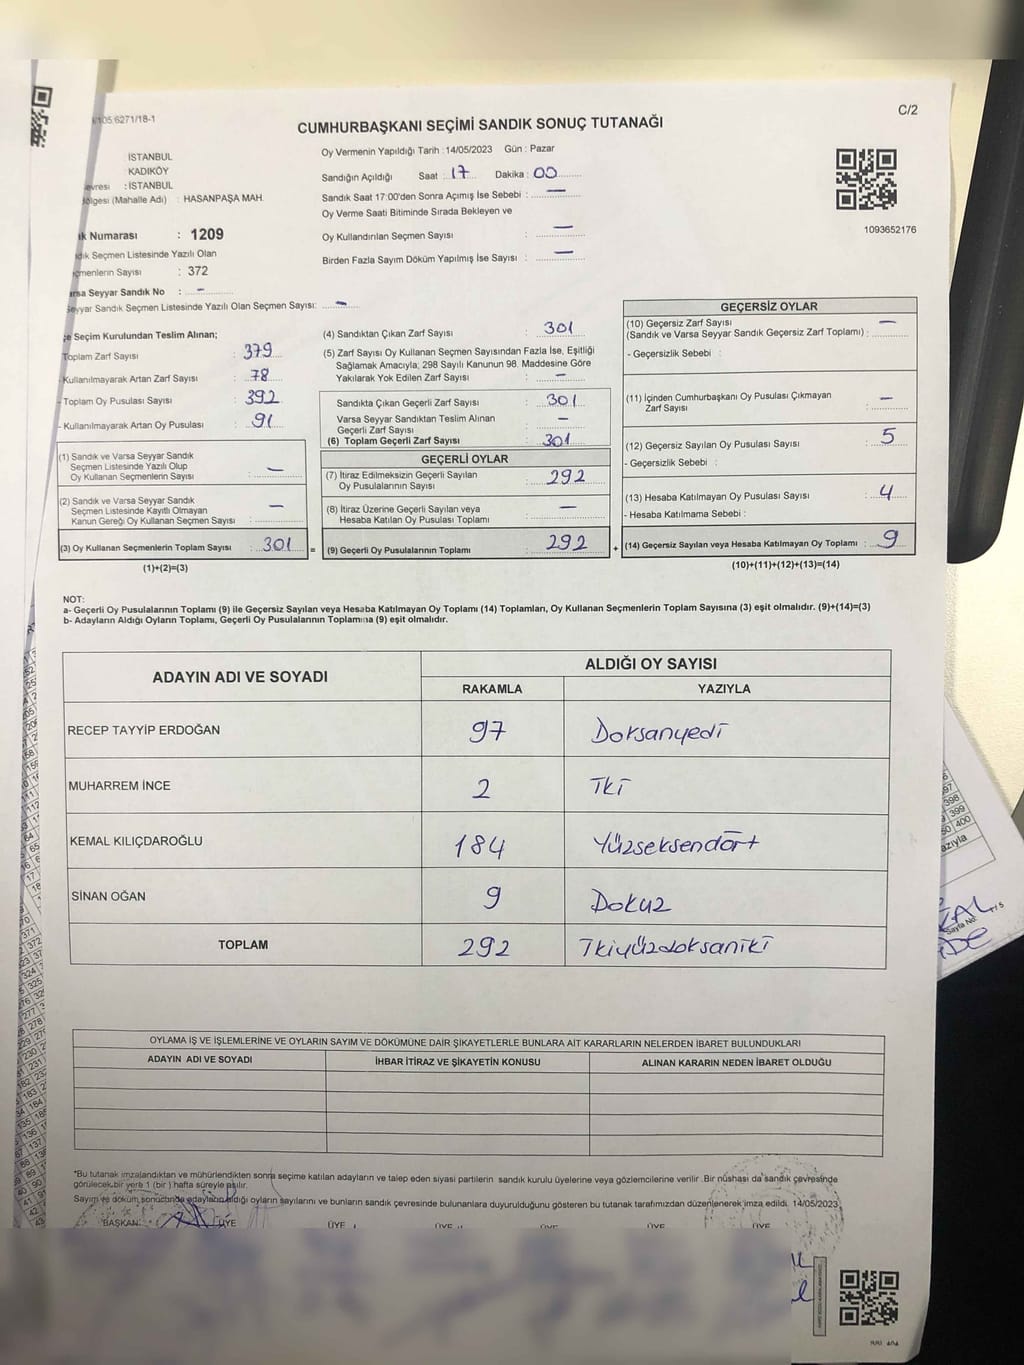 /105.6271/18-1
C/2
CUMHURBAŞKANI SEÇİMİ SANDIK SONUÇ TUTANAĞI
İSTANBUL
KADIKÖY
: İSTANBUL
(Mahalle Adı) : HASANPAŞA MAH.
Numarası : 1209
Seçmen Listesinde Yazılı Olan
Sayısı : 372
Seyyar Sandık No : -
Seyyar Sandık Seçmen Listesinde Yazılı Olan Seçmen Sayısı: -
Oy Vermenin Yapıldığı Tarih : 14/05/2023 Gün : Pazar
Sandığın Açıldığı Saat : 17 Dakika : 00
Sandık Saat 17:00'den Sonra Açımış İse Sebebi : -
Oy Verme Saati Bitiminde Sırada Bekleyen ve
Oy Kullandırılan Seçmen Sayısı : -
Birden Fazla Sayım Döküm Yapılmış İse Sayısı : -
1093652176
Seçim Kurulundan Teslim Alınan;
Toplam Zarf Sayısı : 379
- Kullanılmayarak Artan Zarf Sayısı : 78
- Toplam Oy Pusulası Sayısı : 392
- Kullanılmayarak Artan Oy Pusulası : 91
(1) Sandık ve Varsa Seyyar Sandık
Seçmen Listesinde Yazılı Olup
Oy Kullanan Seçmenlerin Sayısı : -
(2) Sandık ve Varsa Seyyar Sandık
Seçmen Listesinde Kayıtlı Olmayan
Kanun Gereği Oy Kullanan Seçmen Sayısı : -
(3) Oy Kullanan Seçmenlerin Toplam Sayısı : 301 =
(1)+(2)=(3)
(4) Sandıktan Çıkan Zarf Sayısı : 301
(5) Zarf Sayısı Oy Kullanan Seçmen Sayısından Fazla İse, Eşitliği
Sağlamak Amacıyla; 298 Sayılı Kanunun 98. Maddesine Göre
Yakılarak Yok Edilen Zarf Sayısı : -
Sandıkta Çıkan Geçerli Zarf Sayısı : 301
Varsa Seyyar Sandıktan Teslim Alınan
Geçerli Zarf Sayısı : -
(6) Toplam Geçerli Zarf Sayısı : 301
GEÇERLİ OYLAR
(7) İtiraz Edilmeksizin Geçerli Sayılan
Oy Pusulalarının Sayısı : 292
(8) İtiraz Üzerine Geçerli Sayılan veya
Hesaba Katılan Oy Pusulası Toplamı : -
(9) Geçerli Oy Pusulalarının Toplamı : 292 +
GEÇERSİZ OYLAR
(10) Geçersiz Zarf Sayısı
(Sandık ve Varsa Seyyar Sandık Geçersiz Zarf Toplamı) : -
- Geçersizlik Sebebi :
(11) İçinden Cumhurbaşkanı Oy Pusulası Çıkmayan
Zarf Sayısı : -
(12) Geçersiz Sayılan Oy Pusulası Sayısı : 5
- Geçersizlik Sebebi :
(13) Hesaba Katılmayan Oy Pusulası Sayısı : 4
- Hesaba Katılmama Sebebi :
(14) Geçersiz Sayılan veya Hesaba Katılmayan Oy Toplamı : 9
(10)+(11)+(12)+(13)=(14)
NOT:
a- Geçerli Oy Pusulalarının Toplamı (9) ile Geçersiz Sayılan veya Hesaba Katılmayan Oy Toplamı (14) Toplamları, Oy Kullanan Seçmenlerin Toplam Sayısına (3) eşit olmalıdır. (9)+(14)=(3)
b- Adayların Aldığı Oyların Toplamı, Geçerli Oy Pusulalarının Toplamına (9) eşit olmalıdır.
ADAYIN ADI VE SOYADI
ALDIĞI OY SAYISI
RAKAMLA YAZIYLA
RECEP TAYYİP ERDOĞAN 97 Doksanyedi
MUHARREM İNCE 2 İki
KEMAL KILIÇDAROĞLU 184 Yüzseksendört
SİNAN OĞAN 9 Dokuz
TOPLAM 292 İkiyüzdoksaniki
OYLAMA İŞ VE İŞLEMLERİNE VE OYLARIN SAYIM VE DÖKÜMÜNE DAİR ŞİKAYETLERLE BUNLARA AİT KARARLARIN NELERDEN İBARET BULUNDUKLARI
ADAYIN ADI VE SOYADI İHBAR İTİRAZ VE ŞİKAYETİN KONUSU ALINAN KARARIN NEDEN İBARET OLDUĞU
*Bu tutanak imzalandıktan ve mühürlendikten sonra seçime katılan adayların ve talep eden siyasi partilerin sandık kurulu üyelerine veya gözlemcilerine verilir. Bir nüshası da sandık çevresinde
görülecek bir yere 1 (bir ) hafta süreyle asılır.
Sayım ve döküm sonucunda adayların aldığı oyların sayılarını ve bunların sandık çevresinde bulunanlara duyurulduğunu gösteren bu tutanak tarafımızdan düzenlenerek imza edildi. 14/05/2023
BAŞKAN ÜYE ÜYE ÜYE ÜYE ÜYE ÜYE
398
399
400
Sayfa No: